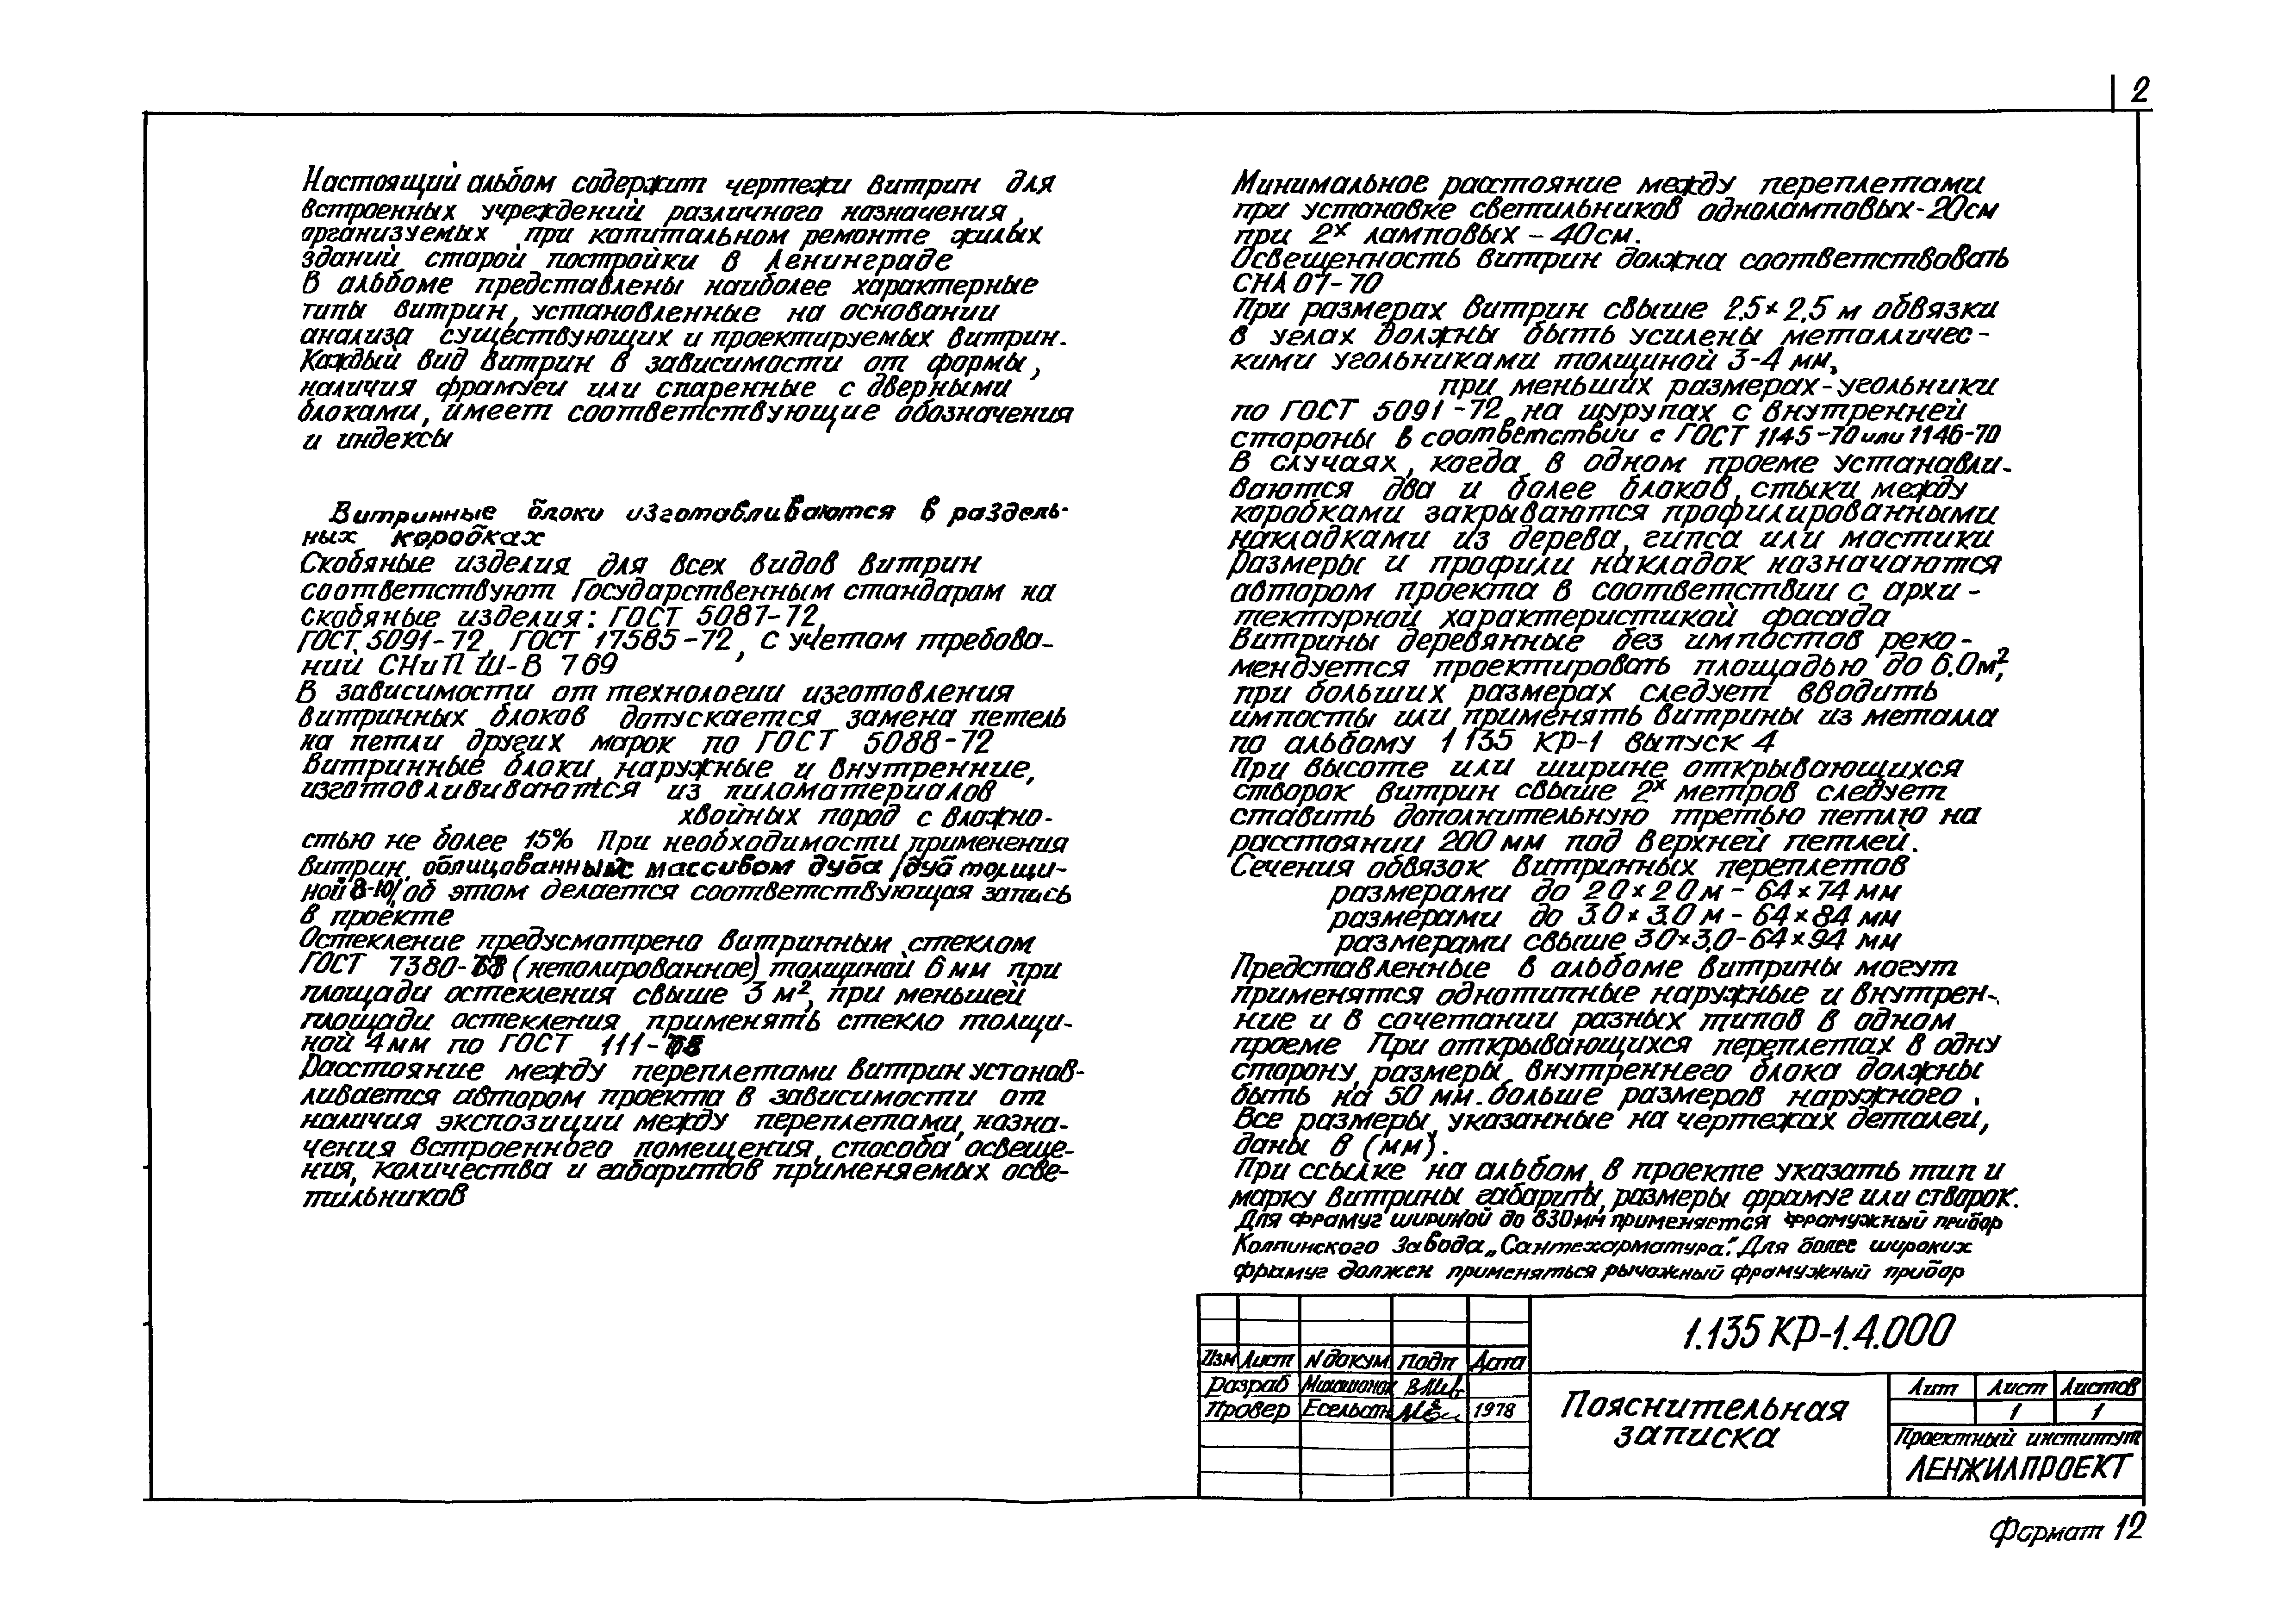 2
Настоящий альбом содержит чертежи витрин для
встроенных учреждений различного назначения,
организуемых при капитальном ремонте жилых
зданий старой постройки в Ленинграде
В альбоме представлены наиболее характерные
типы витрин, установленные на основании
анализа существующих и проектируемых витрин.
Каждый вид витрин в зависимости от формы,
наличия фрамуги или спаренные с дверными
блоками, имеет соответствующие обозначения
и индексы
Витринные блоки изготавливаются в раздель-
ных коробках
Скобяные изделия для всех видов витрин
соответствуют Государственным стандарам на
скобяные изделия: ГОСТ 5087-72,
ГОСТ 5091-72, ГОСТ 17585-72, с учетом требова-
ний СНиП Ш-В 7 69
В зависимости от технологии изготовления
витринных блоков допускается замена петель
на петли других марок по ГОСТ 5088-72
Витринные блоки, наружные и внутренние,
изготовлививаются из пиломатериалов
хвойных пород с влажно-
стью не более 15% При необходимости применения
витрин, облицованных массивом дуба /дуб толщи-
ной 8-10/ об этом делается соответствующая запись
в проекте
Остекление предусмотрено витринным стеклом
ГОСТ 7380- (неполированное) толщиной 6 мм при
площади остекления свыше 3 м², при меньшей
площади остекления применять стекло толщи-
ной 4 мм по ГОСТ 111-
Расстояние между переплетами витрин устанав-
ливается автором проекта в зависимости от
наличия экспозиции между переплетами, назна-
чения встроенного помещения, способа освеще-
ния, количества и габаритов применяемых осве-
тильников
Минимальное расстояние между переплетами
при установке светильников одноламповых-20см
при 2х ламповых - 40см.
Освещенность витрин должна соответствовать
СНА 07-70
При размерах витрин свыше 2.5×2.5 м обвязки
в углах должны быть усилены металличес-
кими угольниками толщиной 3-4 мм,
при меньших размерах-угольники
по ГОСТ 5091-72 на шурупах с внутренней
стороны в соответствии с ГОСТ 1145-70 или 1146-70
В случаях, когда в одном проеме устанавли-
ваются два и более блоков, стыки между
коробками закрываются профилированными
накладками из дерева, гипса или мастики
Размеры и профили накладок назначаются
автором проекта в соответствии с архи-
тектурной характеристикой фасада
Витрины деревянные без импостов реко-
мендуется проектировать площадью до 6.0м²,
при больших размерах следует вводить
импосты или применять витрины из металла
по альбому 1 135 КР-1 выпуск 4
При высоте или ширине открывающихся
створок витрин свыше 2х метров следует
ставить дополнительную третью петлю на
расстоянии 200 мм под верхней петлей.
Сечения обвязок витринных переплетов
размерами до 2 0×2 0 м - 64×74 мм
размерами до 3.0×3.0 м - 64×84 мм
размерами свыше 3 0×3.0-64×94 мм
Представленные в альбоме витрины могут
применятся однотипные наружные и внутрен-
ние и в сочетании разных типов в одном
проеме При открывающихся переплетах в одну
сторону, размеры внутреннего блока должны
быть на 50 мм. больше размеров наружного.
Все размеры, указанные на чертежах деталей,
даны в (мм).
При ссылке на альбом, в проекте указать тип и
марку витрины габариты, размеры фрамуг или створок.
Для фрамуг шириной до 830мм применяется фрамужный прибор
Колпинского завода „Сантехарматура". Для более широких
фрамуг должен применяться рычажный фрамужный прибор
1.135 КР-1.4.000
Изм Лист N докум. Подп Дата
Разраб
Провер 1978
Пояснительная
записка
Лит Лист Листов
1 1
Проектный институт
ЛЕНЖИЛПРОЕКТ
Формат 12